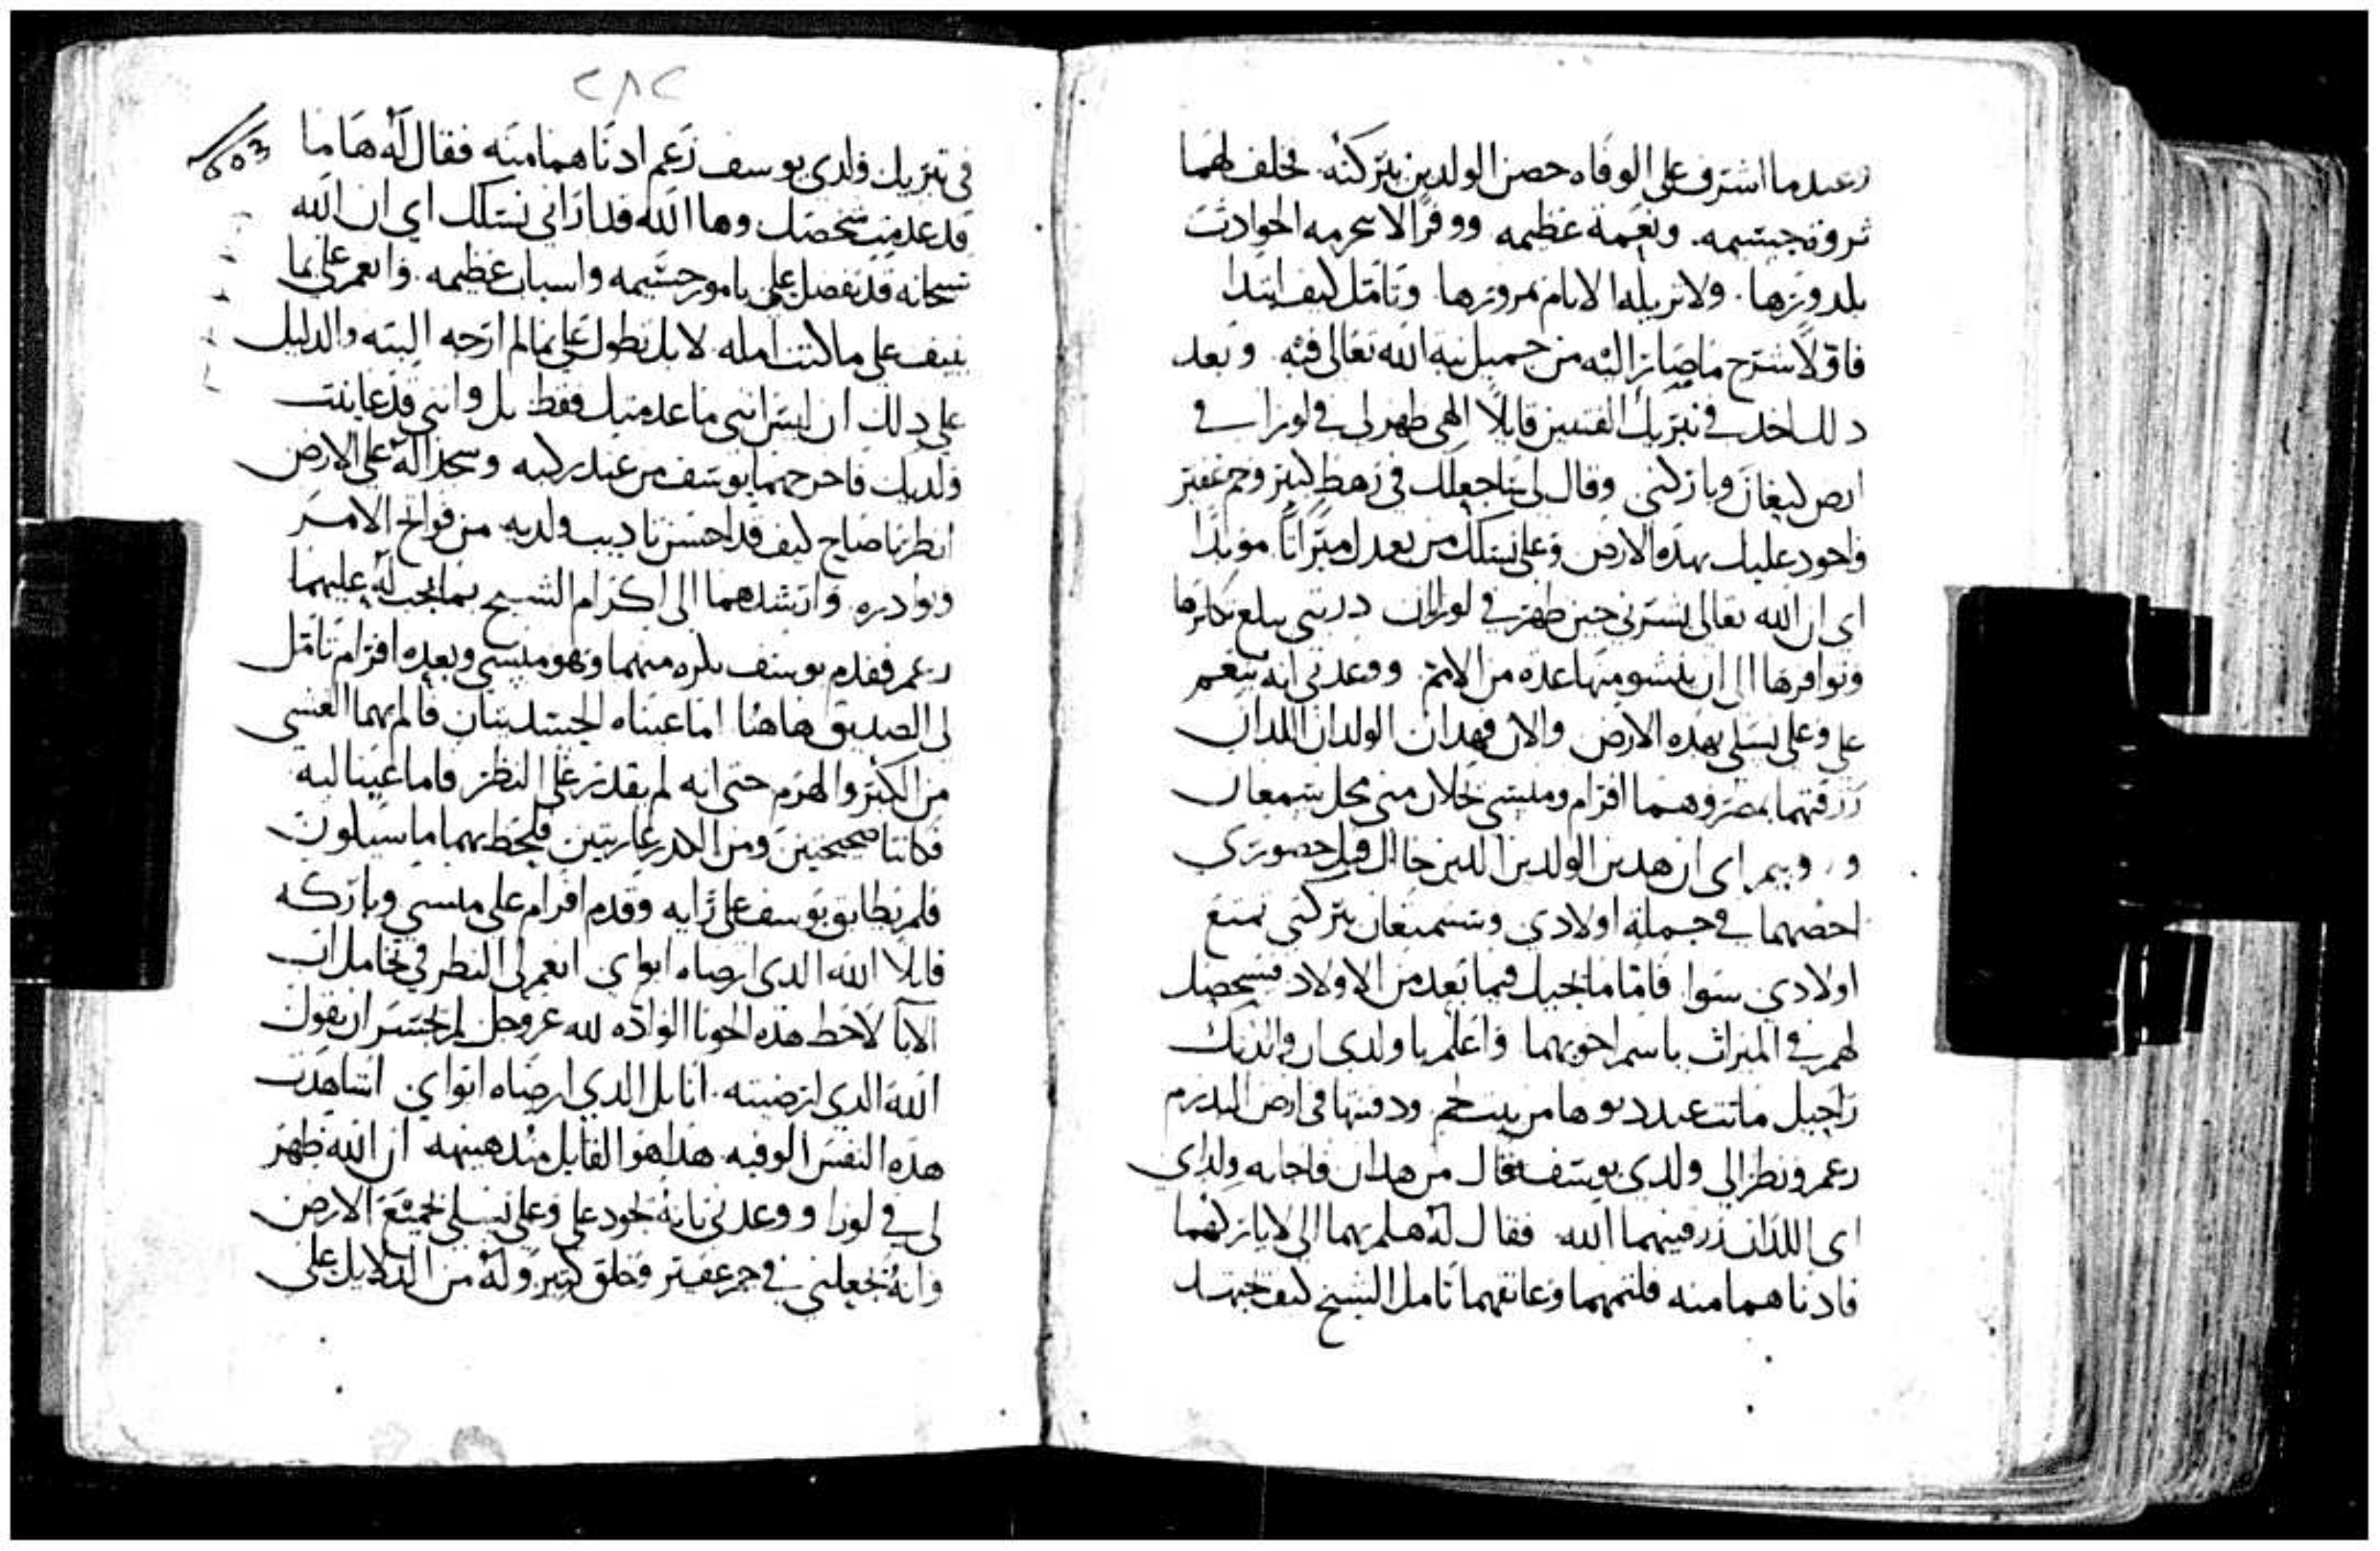 وعندما اشرف على الوفاه حصن الولدين بتركته. فخلف لهما
ثروه جسيمه. ونعمة عظيمه ووفرًا لا تخرمه الحوادث
بلدورها. ولا تزيله الايام بمرورها. وتامل كيف ابتدا
فاولًا شرح ما صار اليه من جميل نية الله تعالى فيه. وبعد
دلك اخد في تبريك الفتيين قايلًا الهي ظهر لي في لورا في
ارض كنعان وباركني وقال لي ساجعلك في رهط كثير وجم غفير
واجود عليك بهده الارض وعلى نسلك من بعدك ميراثًا موبدًا
اي ان الله تعالى بشرني حين ظهر في لورا ان دريتي يبلغ تكاثرها
وتوافرها الى ان ينشو منها عده من الامم. ووعدني انه ينعم
علي وعلى نسلي بهده الارض والان فهدان الولدان اللدان
رزقتهما بمصر وهما افرام ومنسي يحلان مني محل شمعان
وروبيم اي ان هدين الولدين اللدين جاا لك قبل حضوري
احصهما في جملة اولادي وسيتمتعان بتركتي تمتع
اولادي سوا فاما ما تخيل فيما بعد من الاولاد فسيحصل
لهم في الميراث باسم اخويهما واعلم يا ولدي ان والدتك
راحيل ماتت عند دنوها من بيت لحم. ودفنتها في ارض البدرم
زعم ونظر الى ولدي يوسف فقال من هدان فاجابه ولداي
اي اللدان رزقنيهما الله. فقال له هلم بهما الي لاباركهما
فادناهما منه فلثمهما وعانقهما تامل الشيخ كيف يجتهد
٢٨٢
603
في تبريك ولدي يوسف زعم ادناهما منه فقال له ها ما
قد عدمت شخصك وها الله قد اراني نسلك اي ان الله
سبحانه قد تفضل علي بامور جسيمه واسباب عظيمه. وانعم علي بما
ينيف على ما كنت امله. لا بل تطول علي بما لم ارجه البته والدليل
على دلك ان ليس انني ما عدمتك فقط بل وانني قد عاينت
ولديك فاخرجهما يوسف من عند ركبه وسجدا له على الارض
انظر يا صاح كيف قد احسن تاديب ولديه من فواتح الامر
وبوادره. وارشدهما الى اكرام الشيخ بما يجب له عليهما
زعم فقدم يوسف بكره منهما وهو منسي وبعده افرام تامل
لي الصديق هاهنا اما عيناه الجسديتان فالم بهما العشي
من الكبر والهرم حتى انه لم يقدر على النظر فاما عينا لبه
فكانتا صحيحتين ومن الكدر عاريتين فلحظ بهما ما سيكون
فلم يطابق يوسف على رايه وقدم افرام على منسي وباركه
قايلًا الله الدي ارضاه ابواي انعم لي النظر في تخامل اب
الابا لاحظ هده الحوبا الواده لله عز وجل لم يجسر ان يقول
الله الدي ارضيته. انا بل الدي ارضاه ابواي اشاهدت
هده النفس الوفيه. هدا هو القايل مند هنيهه ان الله ظهر
لي في لورا ووعدني بانه يجود علي وعلى نسلي بجميع الارض
وانه يجعلني في جم غفير وخلق كثير وله من الدلايل على